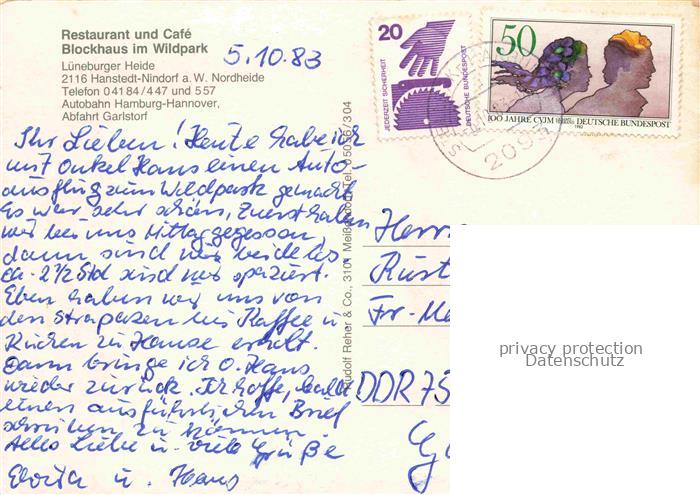 Restaurant und Café
Blockhaus im Wildpark
Lüneburger Heide
2116 Hanstedt-Nindorf a. W. Nordheide
Telefon 0 41 84 / 4 47 und 5 57
Autobahn Hamburg-Hannover,
Abfahrt Garlstorf
5.10.83
Ihr Lieben! Heute habe ich
mit Onkel Hans einen Auto-
ausflug zum Wildpark gemacht
Es war sehr schön, Zuerst haben
wir bei uns Mittag gegessen,
dann sind wir beide los
ca. 2 1/2 Std sind wir spaziert.
Eben haben wir uns von
den Strapazen bei Kaffee u
Kuchen zu Hause erholt.
Dann bringe ich O. Hans
wieder zurück. Ich hoffe, bald
einen ausführlichen Brief
schreiben zu können.
Alles Liebe u. viele Grüße
u. Hans
Rudolf Reher & Co., 3101 Meißendorf, Tel. 0 50 56 / 304
20
JEDERZEIT SICHERHEIT
DEUTSCHE BUNDESPOST
50
100 JAHRE CVJM DEUTSCHE BUNDESPOST
1982
2095
Herrn
Fr-Me
DDR 75
privacy protection
Datenschutz